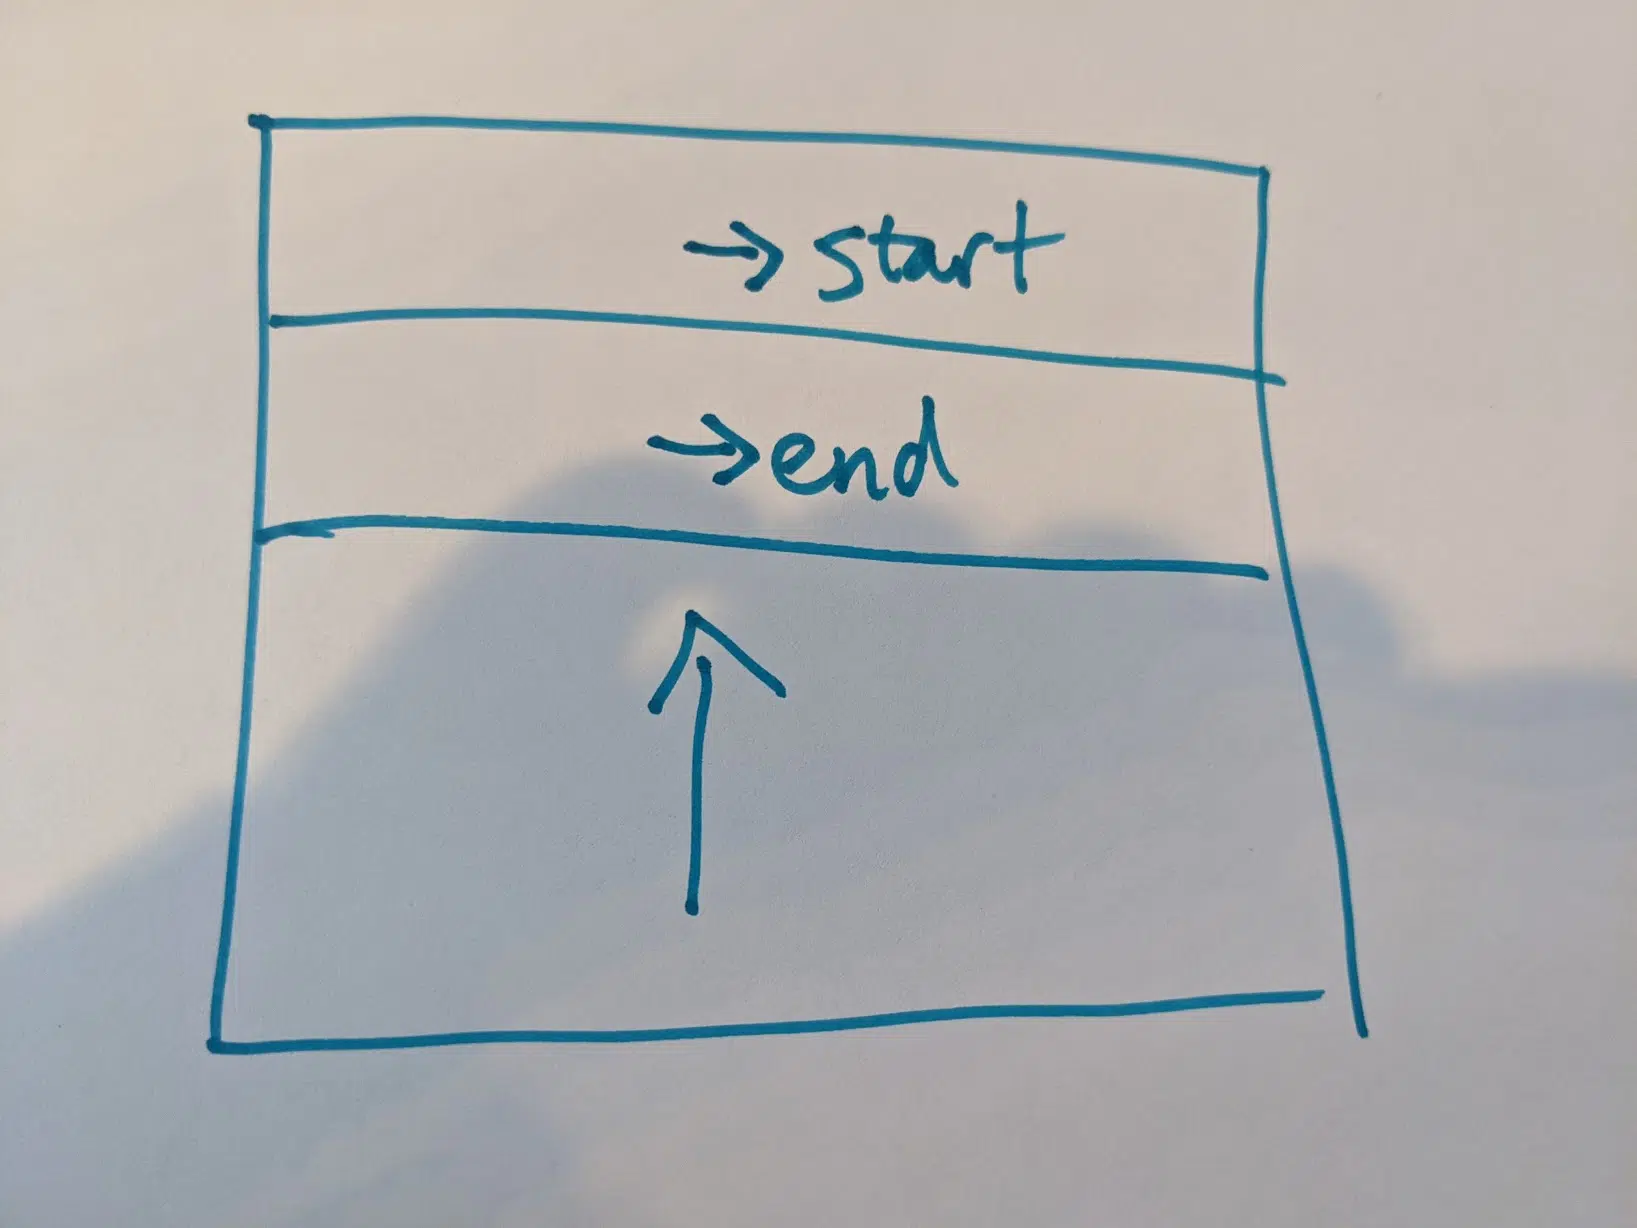 → start
→ end